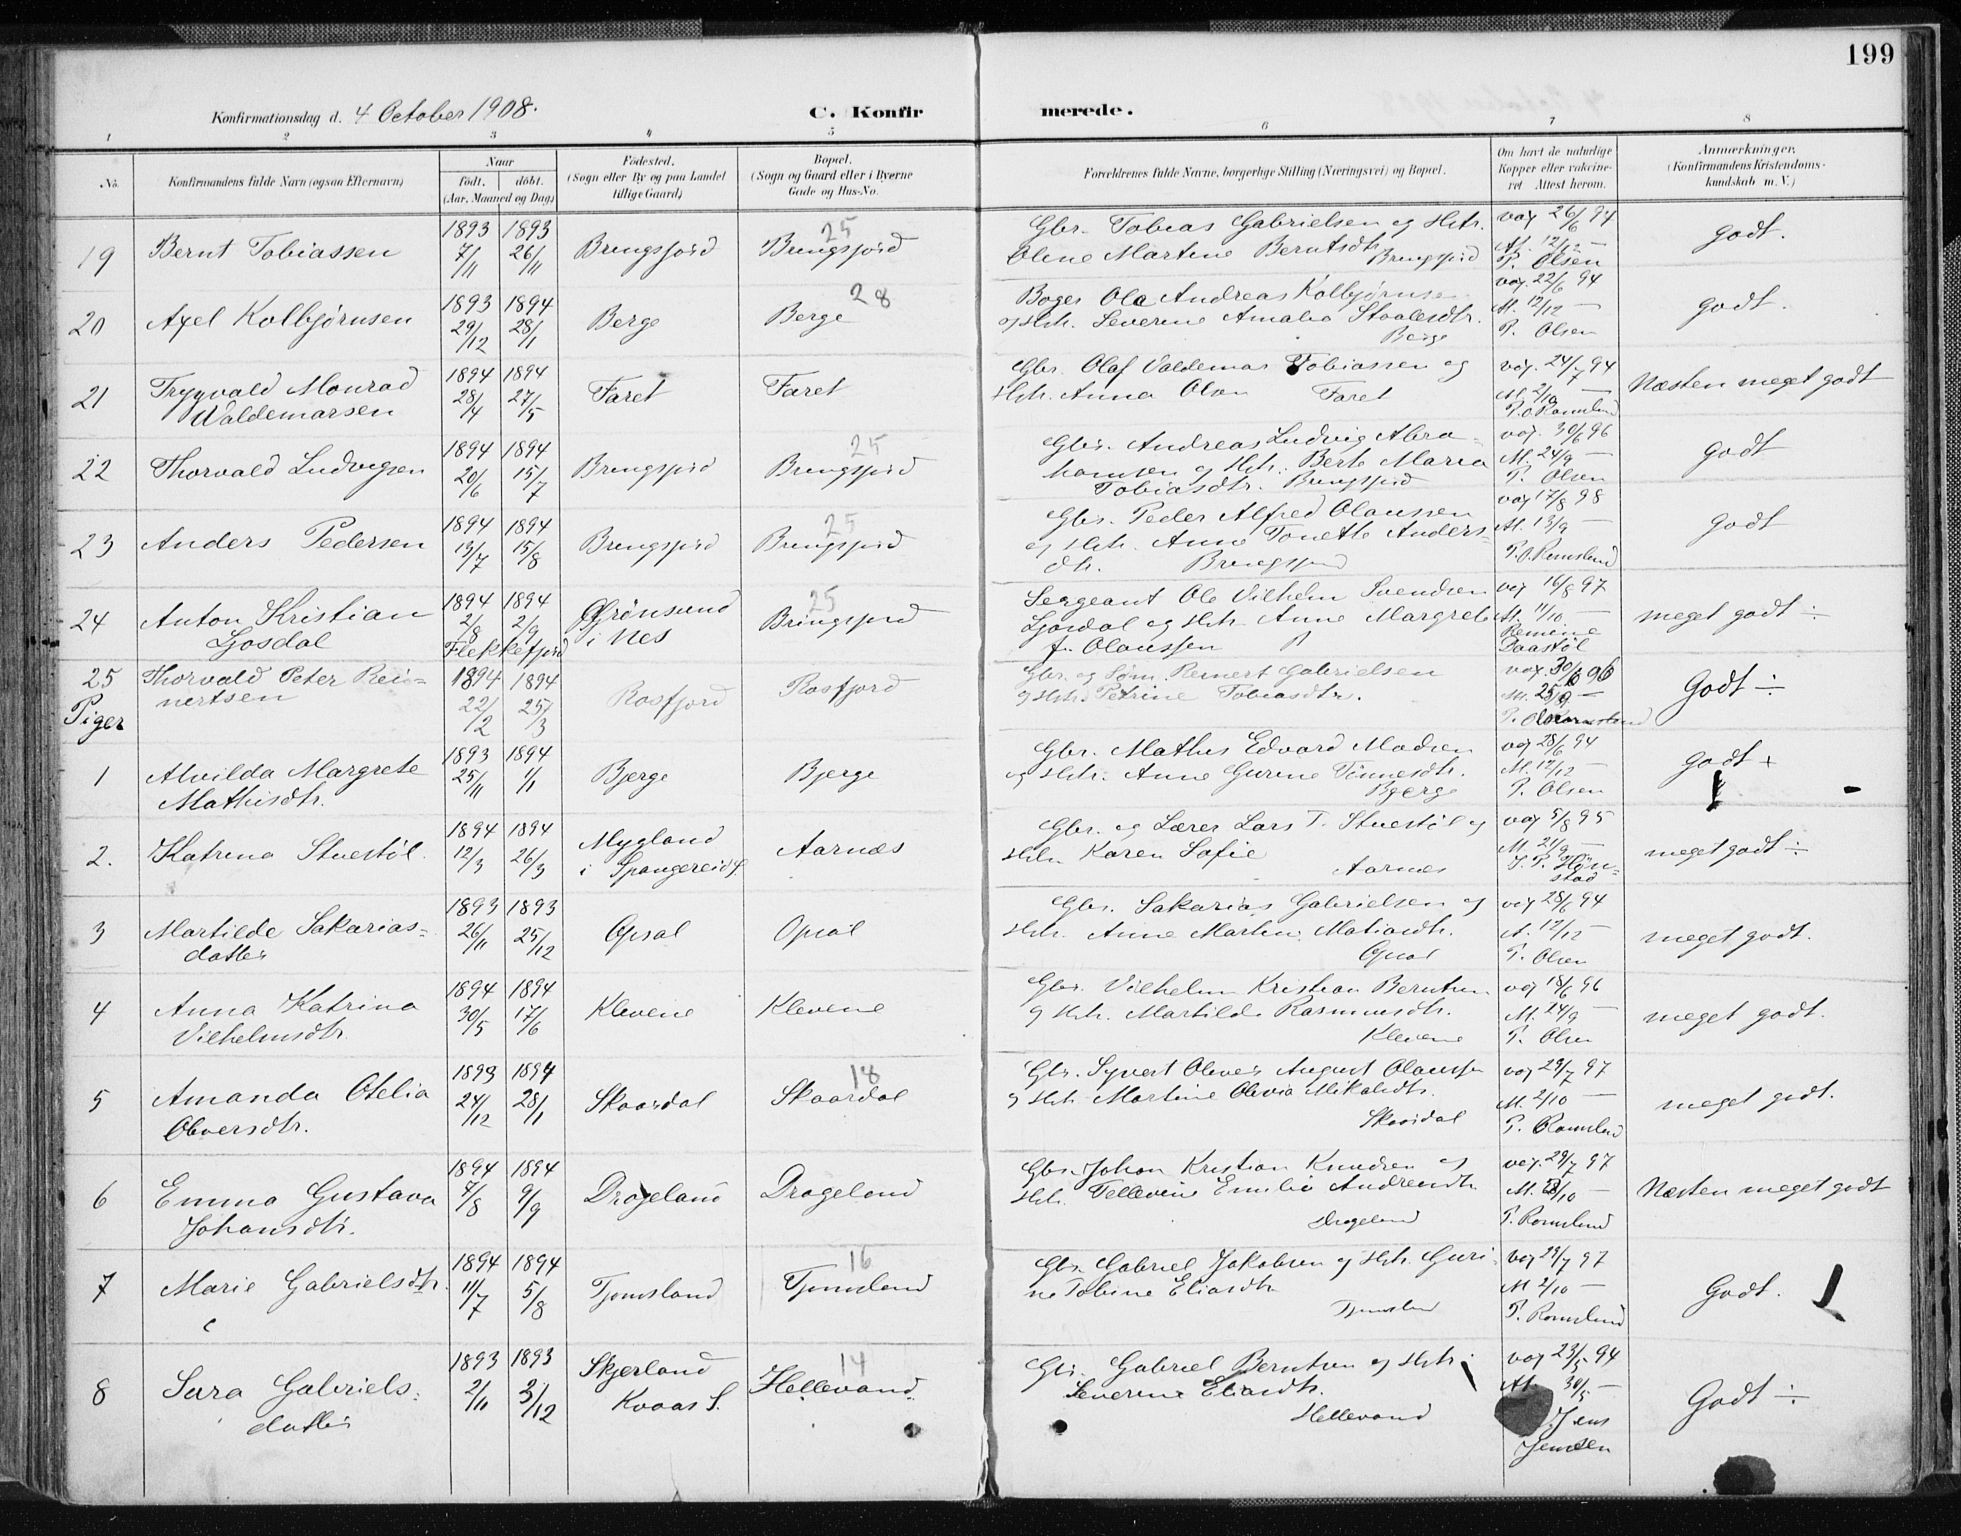 199
Konfirmationsdag d. 4 October 1908.
C. Konfirmerede.
1 2 3 4 5 6 7 8
No.
Konfirmandens fulde Navn (ogsaa Efternavn)
Naar
født. døbt.
(Aar, Maaned og Dag)
Fødested.
(Sogn eller By og paa Landet
tillige Gaard)
Bopæl.
(Sogn og Gaard eller i Byerne
Gade og Hus-No.
Forældrenes fulde Navne, borgerlige Stilling (Næringsvei) og Bopæl.
Om havt de naturlige
Kopper eller vakcine-
ret Attest herom.
Anmærkninger.
(Konfirmandens Kristendoms-
kundskab m. V.)
19 Bernt Tobiassen
1893 1893
7/11 26/11
Brengsfjord
25
Brengsfjord
Gbr. Tobias Gabrielsen og Hstr.
Oline Martine Berntsdtr. Brengsfjord
vax 26/6 94
At. 12/12 —
P. Olsen
godt.
20 Axel Kolbjørnsen
1893 1894
29/12 28/1
Berge
28
Berge
Ole Andreas Kolbjørnsen
og Hstr. Severine Amalia Staalesdtr.
Berge
vax. 22/6 94
At. 12/12 —
P. Olsen
godt.
21 Trygvald Monrad
Waldemarsen
1894 1894
28/4 27/5
Faret
Faret
Gbr. Olaf Valdemar Tobiassen og
Hstr. Anna Olsen Faret
vax. 24/7 94
At. 2/10 —
P. O. Romslund
Næsten meget godt
22 Thorvald Ludvigsen
1894 1894
20/6 15/7
Brengsfjord
25
Brengsfjord
Gbr. Andreas Ludvig Abra-
hamsen og Hstr. Berte Maria
Tobiasdtr. Brengsfjord
vax. 30/6 96
At. 24/9 —
P. Olsen
godt
23 Anders Pedersen
1894 1894
13/7 15/8
Brengsfjord
25
Brengsfjord
Gbr. Peder Alfred Olaussen
og Hstr. Anne Tonette Anders-
dtr. Brengsfjord
vax 17/8 98
At. 13/9 —
P. O. Romslund
godt
24 Anton Kristian
Ljosdal
1894 1894
2/8 2/9
Flekkefjord
Grønsund
i Nes
25
Bringsfjord
Sergeant Ole Vilhelm Svendsen
Ljosdal og Hstr. Anne Margrete
f. Olaussen
vax 16/8 97
At. 11/10 —
Daastøl
meget godt ÷
25 Thorvald Peter Rei-
nertsen
1894 1894
22/2 25/3
Rosfjord
Rosfjord
Gbr. og Søm. Reinert Gabrielsen
og Hstr. Petrine Tobiasdtr.
vax. 30/6 96
At. 25/9 —
P. O. Romslund
Godt ÷
Piger
1 Alvilda Margrete
Mathisdtr.
1893 1894
25/11 1/1
Bjerge
Bjerge
Gbr. Mathis Edvard Madsen
og Hstr. Anne Gurine Tønnesdtr.
Bjerge
vax 28/6 94
At. 12/12 —
P. Olsen
godt +
2. Katrina Stuestøl.
1894 1894
12/3 26/3
Mygland
i Spangereid S.
Aarnæs
Gbr. og Lærer Lars T. Stuestøl og
Hstr. Karen Sofie
Aarnæs
vax 5/8 95
At. 21/9 —
meget godt ÷
3 Martilde Sakarias-
datter
1893 1893
26/11 25/12
Opsal
Opsal
Gbr. Sakarias Gabrielsen og
Hstr. Anne Martine Matiasdtr.
Opsal
vax 28/6 94
At. 12/12 —
P. Olsen
meget godt.
4 Anna Katrina
Vilhelmsdtr.
1894 1894
30/5 17/6
Klevene
Klevene
Gbr. Vilhelm Kristian Berntsen
og Hstr. Martilde Rasmusdtr.
Klevene
vax 18/6 96
At. 24/9 —
P. Olsen
meget godt.
5 Amanda Otelia
Oliversdtr.
1893 1894
24/12 28/1
Skaardal
18
Skaardal
Gbr. Syvert Oliver August Olaussen
og Hstr. Martine Olivia Mikalsdtr.
Skaardal
vax 29/7 97
At. 2/10 —
P. Romslund
meget godt.
6 Emma Gustava
Johansdtr.
1894 1894
7/8 9/9
Drageland
Drageland
Gbr. Johan Kristian Knudsen og
Hstr. Tellevine Emilie Andreasdtr
Drageland
vax. 29/7 97
At. 2/10 —
P. Romslund
Næsten meget godt
7 Marie Gabrielsdtr.
1894 1894
11/7 5/8
Tjomsland
16
Tjomsland
Gbr. Gabriel Jakobsen og Hstr. Guri-
ne Tobine Eliasdtr.
Tjomsland
vax 29/7 97
At. 2/10 —
P. Romslund
Godt.
8 Sara Gabriels-
datter
1893 1893
2/11 3/12
Skjerland
Kvaas S.
14
Hellevand.
Gbr. Gabriel Berntsen og Hstr.
Severine Eliasdtr.
Hellevand
vax 23/5 94
At. 30/5 —
Jens
Jensen
Godt ÷